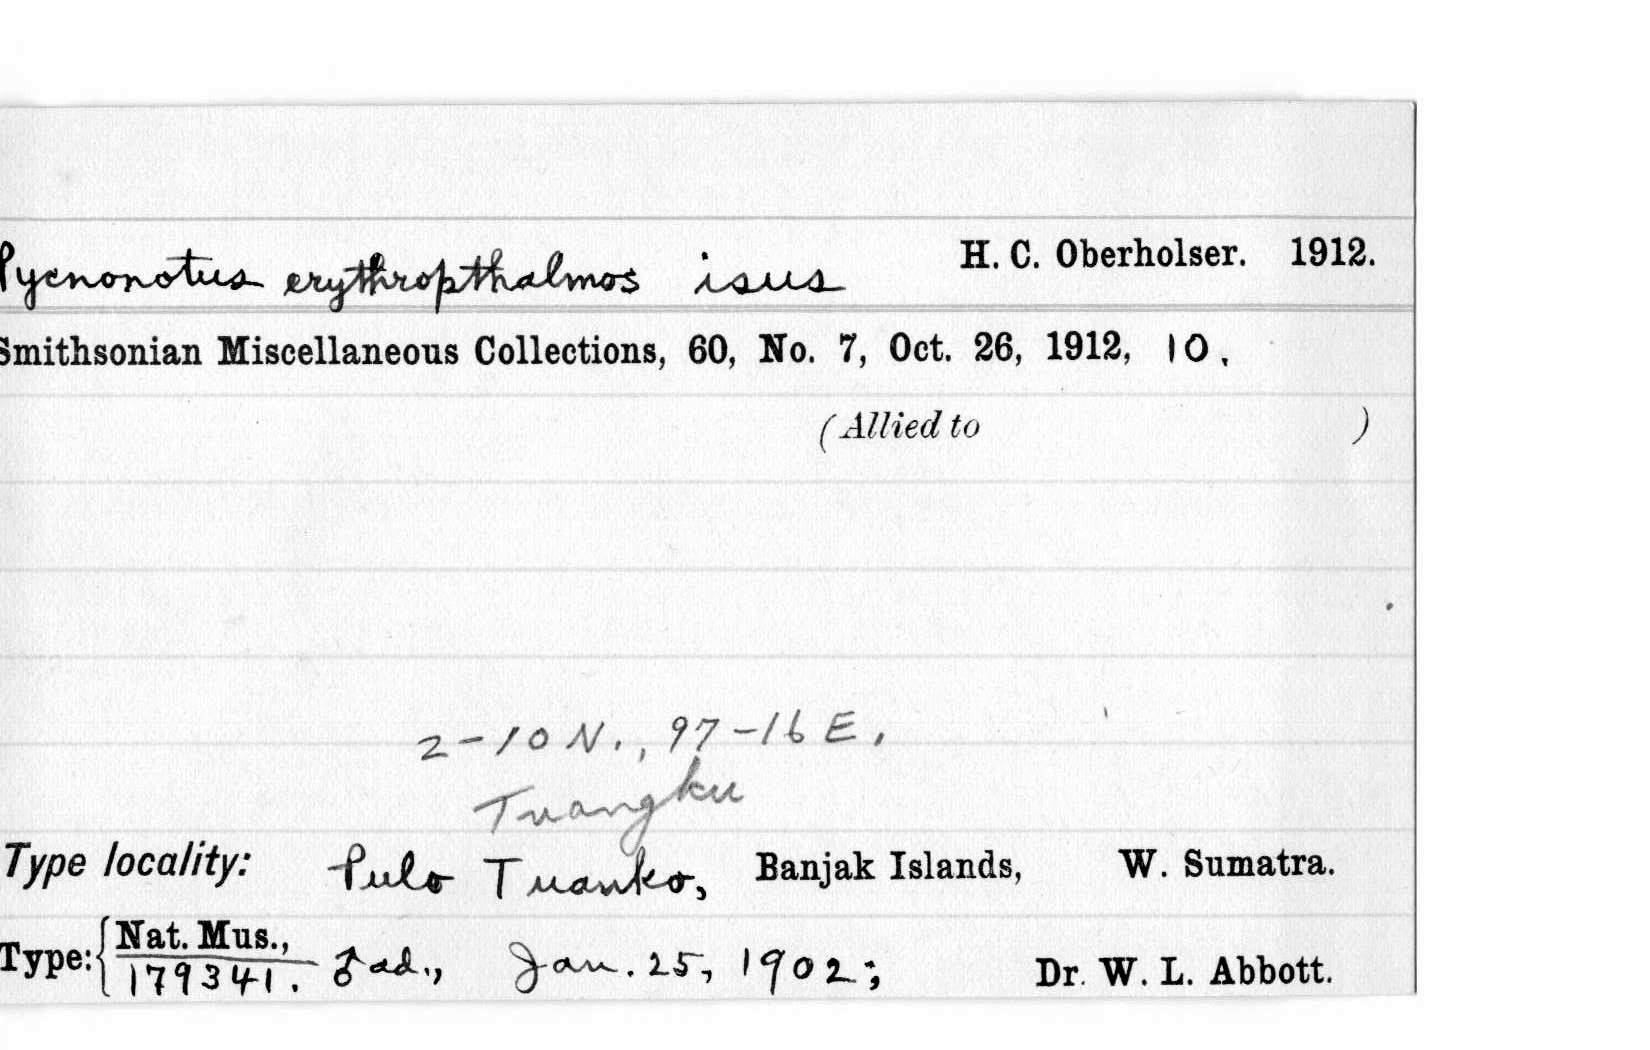 Pycnonotus erythropthalmos isus H. C. Oberholser. 1912.
Smithsonian Miscellaneous Collections, 60, No. 7, Oct. 26, 1912, 10.
(Allied to )
2-10 N., 97-16 E.
Tuangku
Type locality: Pulo Tuanko, Banjak Islands, W. Sumatra.
Type: { Nat. Mus., 179341. ♂ ad., Jan. 25, 1902; Dr. W. L. Abbott.